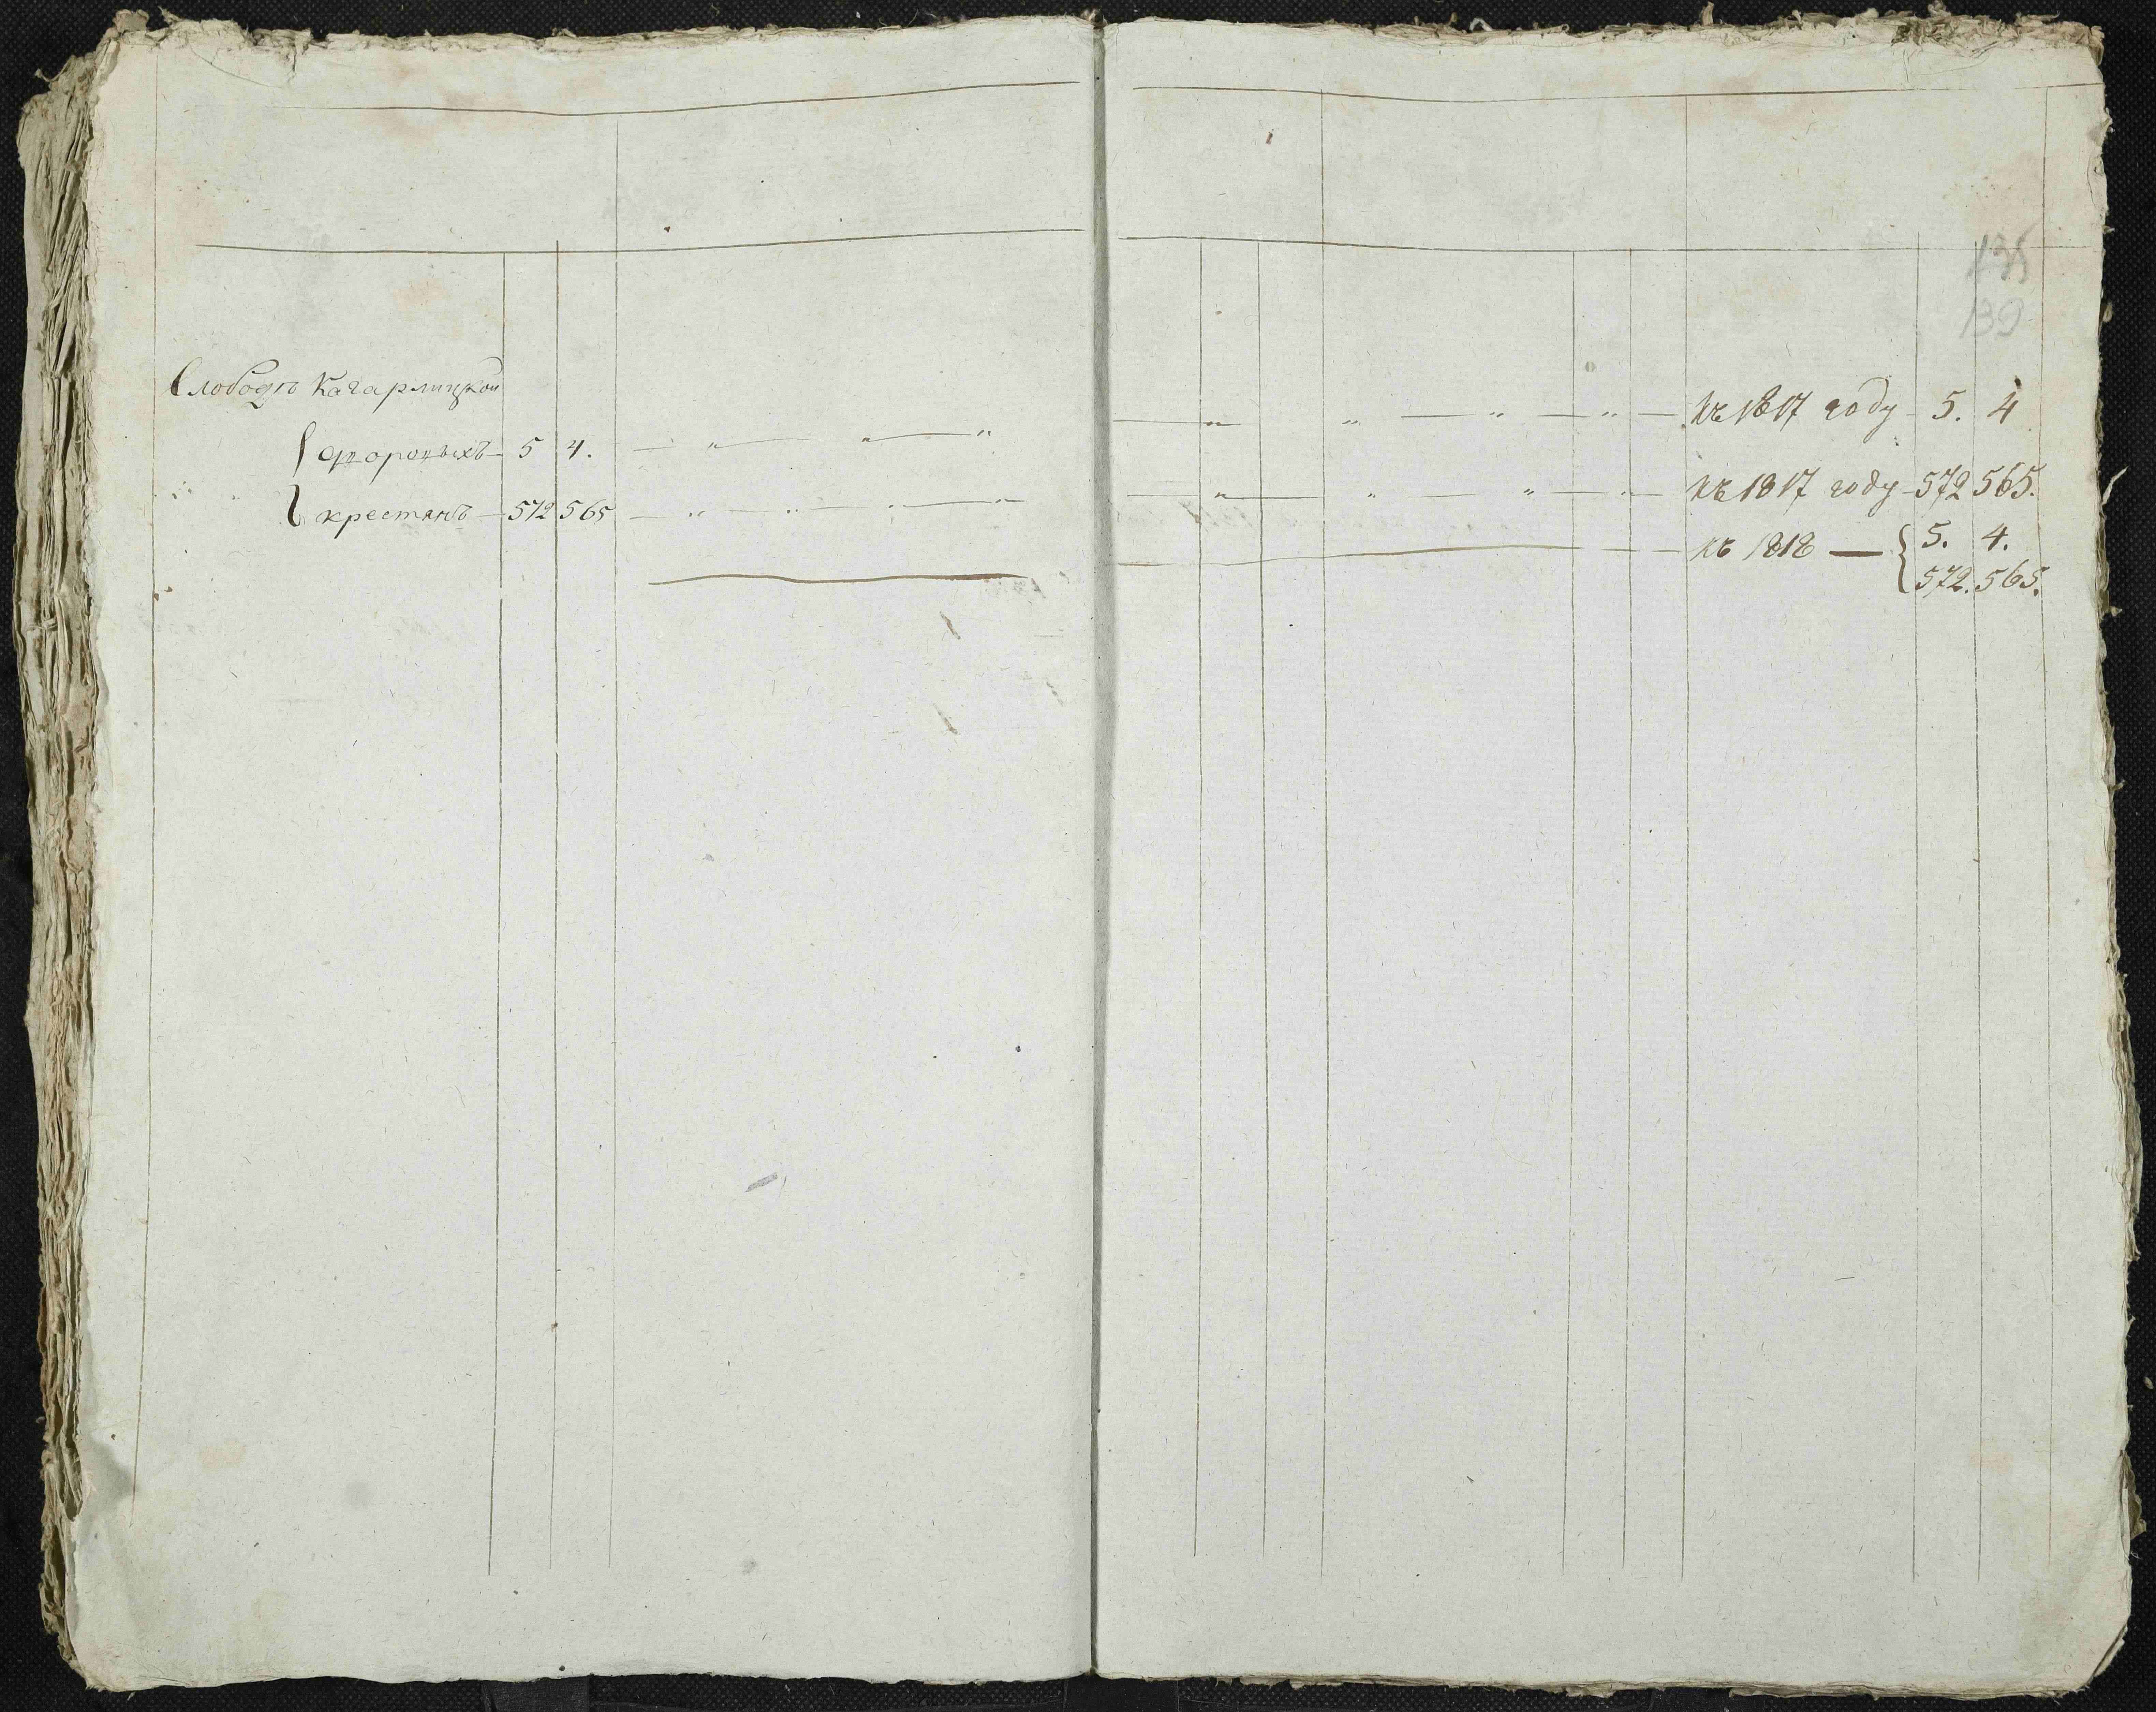 135
139
Слободѣ Кагарлицкой
дворовыхъ — 5 4. — „ — „ — „ — „ — „ — „ — „ — къ 1817 году — 5. 4
крестянъ — 572 565 — „ — „ — „ — „ — „ — „ — „ — „ — къ 1817 году — 572 565.
къ 1818 — { 5. 4.
572. 565.